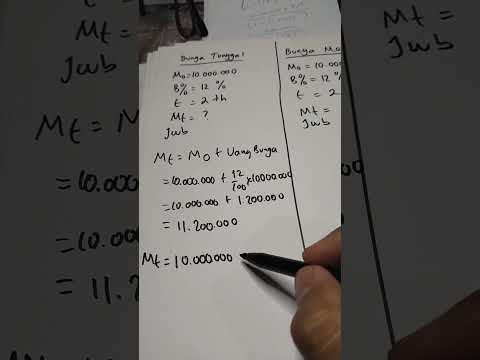 Bunga Tunggal
M0 = 10.000.000
B% = 12 %
t = 2 th
Mt = ?
Jwb
Mt = M0 + Uang Bunga
= 10.000.000 + 12/100 x 10000.000
= 10.000.000 + 1.200.000
= 11.200.000
Mt = 10.000.000
Bunga Mo
M0 = 10.00
B% = 12
t = 2
Mt =
Jwb